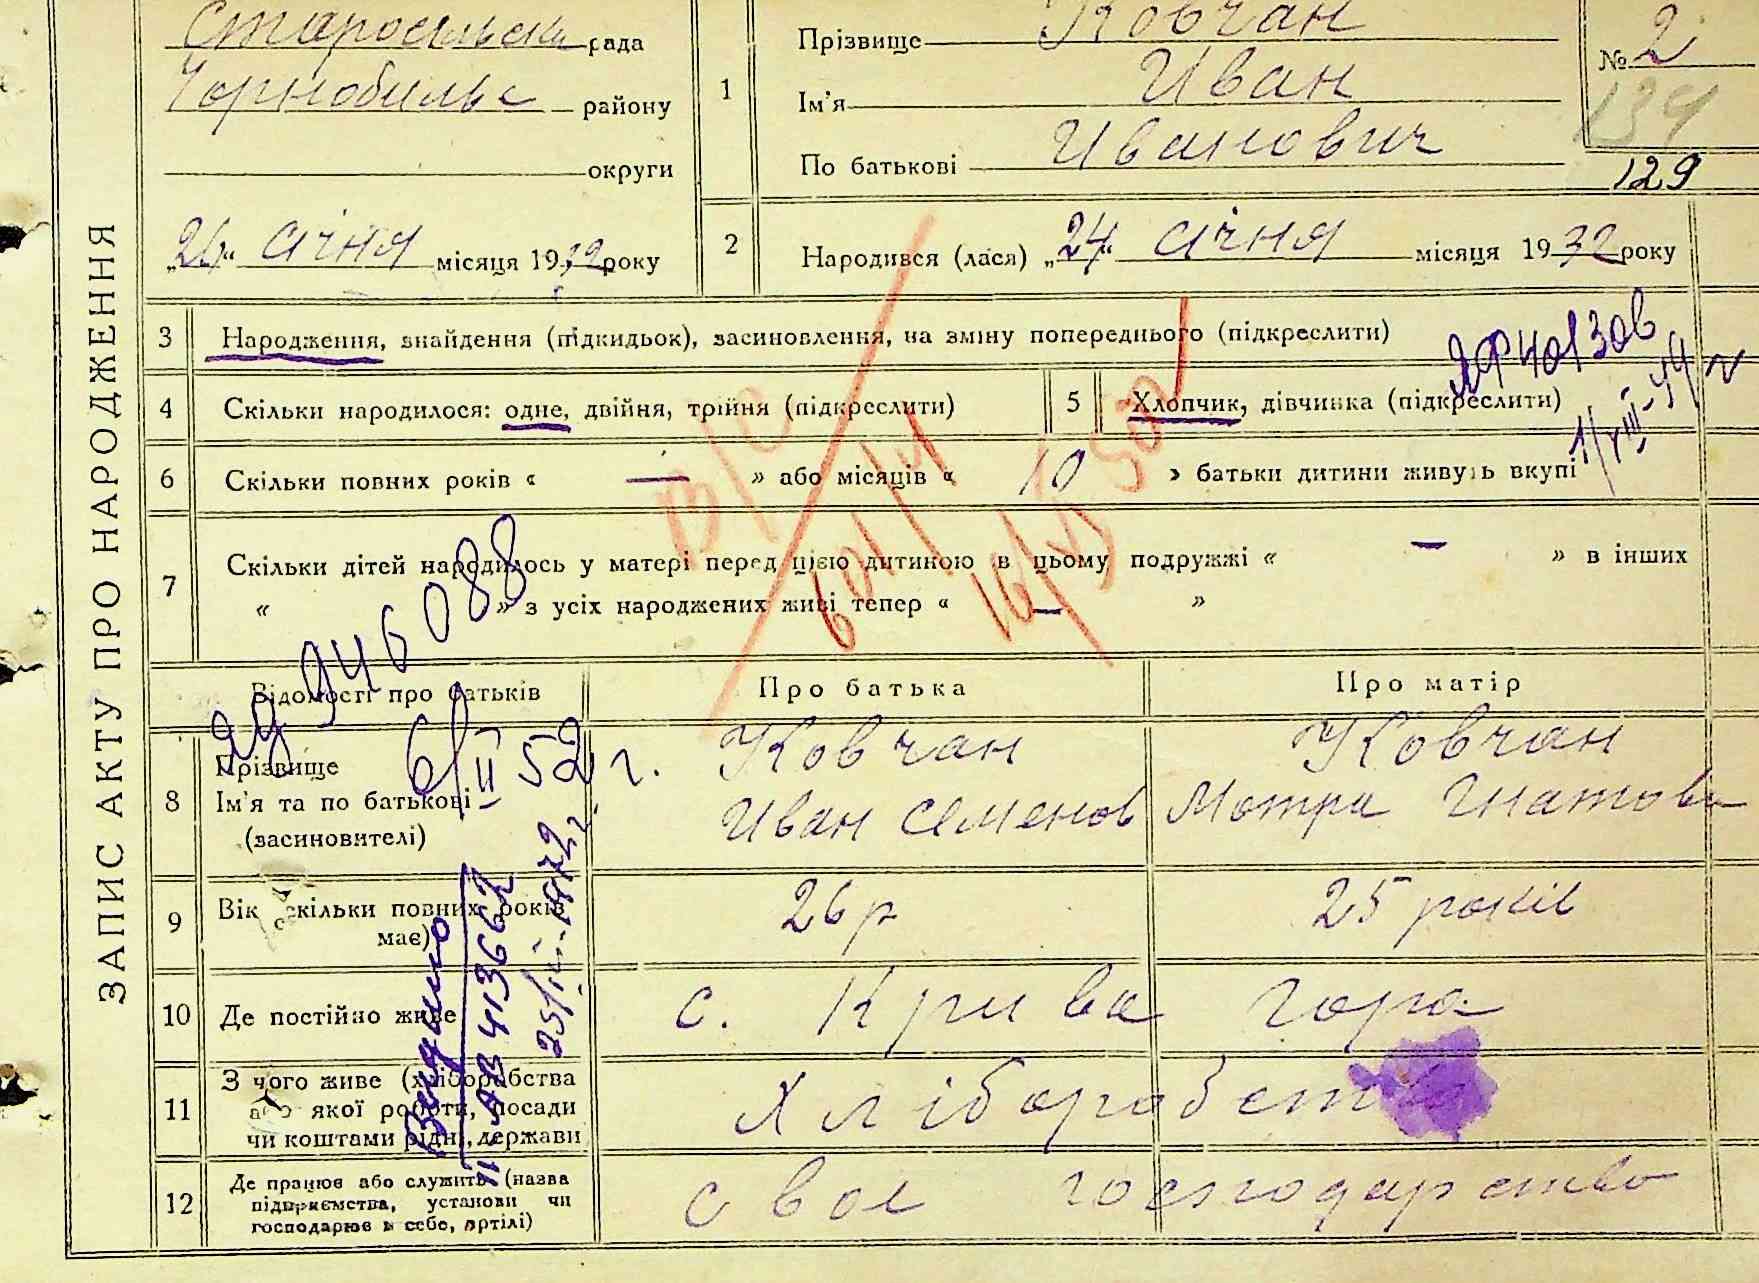 ЗАПИС АКТУ ПРО НАРОДЖЕННЯ
Старосільська рада
Чорнобильс району
округи
„26“ січня місяця 1932 року
1
Прізвище Ковчан
Ім'я Иван
По батькові Иванович
№ 2
134
129
2
Народився (лася) „24“ січня місяця 1932 року
3 Народження, знайдення (підкидьок), засиновлення, на зміну попереднього (підкреслити)
4 Скільки народилося: одне, двійня, трійня (підкреслити)
5 Хлопчик, дівчинка (підкреслити)
6 Скільки повних років « — » або місяців « 10 » батьки дитини живуть вкупі
7 Скільки дітей народилось у матері перед цією дитиною в цьому подружжі « — » в інших
« » з усіх народжених живі тепер « — »
946088
6/II 52 г.
Відомості про батьків Про батька Про матір
8 Прізвище
Ім'я та по батькові
(засиновителі)
Ковчан
Иван Семенов
Ковчан
Мотря Гнатови
9 Вік (скільки повних років
має)
26 р
25 років
10 Де постійно живе с. Крива гора
11 З чого живе (хліборобства
або якої роботи, посади
чи коштами рідні, держави
Хліборобство
12 Де працює або служить (назва
підприємства, установи чи
господарює в себе, артілі)
своє господарство
Видано
413662